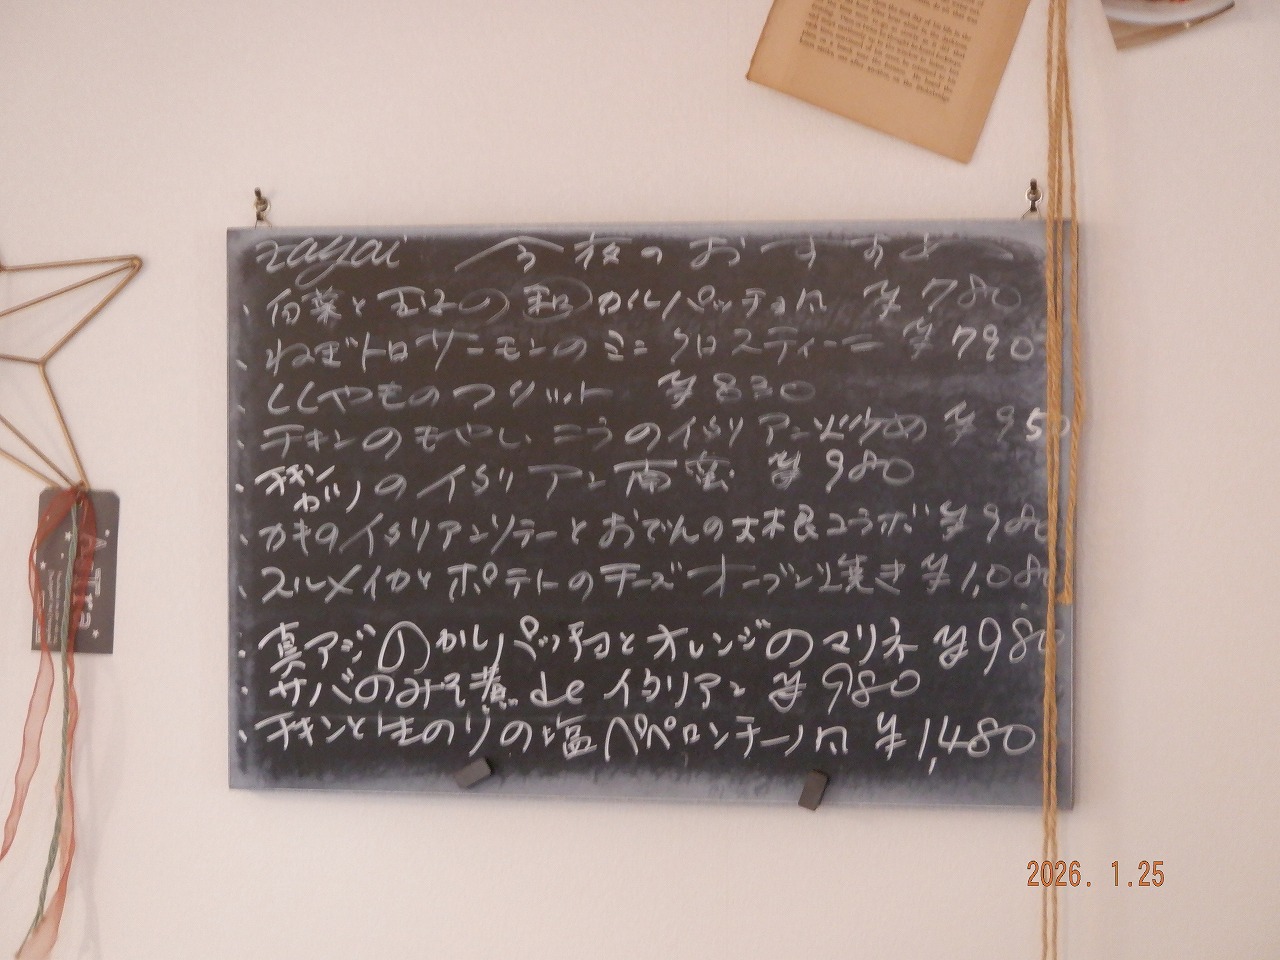 zayai 今夜のおすすめ
・白菜と玉子の和カルパッチョ風 ¥780
・ねぎトロサーモンのミニクロスティーニ ¥790
・ししゃものフリット ¥830
・チキンのもやしニラのイタリアン炒め ¥950
・チキンのイタリアン南蛮 ¥980
・カキのイタリアンソテーとおでんの大根コラボ ¥980
・スルメイカとポテトのチーズオーブン焼き ¥1,080
・真アジのカルパッチョとオレンジのマリネ ¥980
・サバのみそ煮 de イタリアン ¥980
・チキンと生のりの塩ペペロンチーノ風 ¥1,480
2026. 1.25